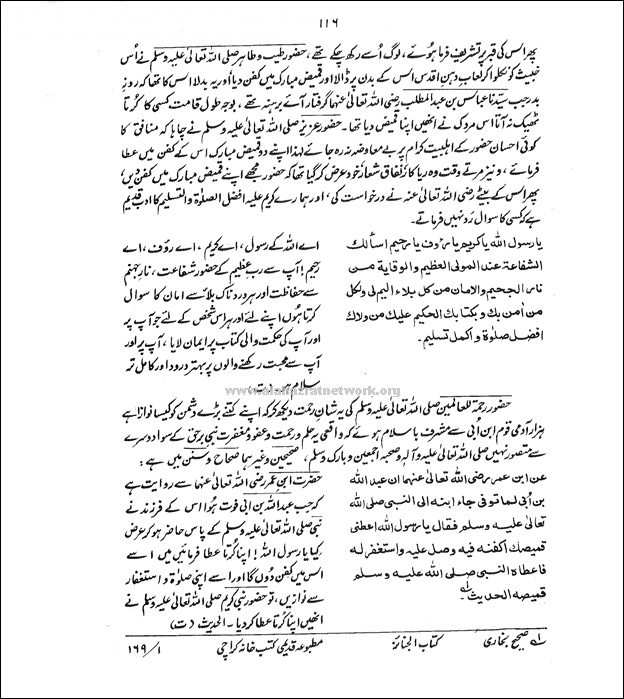 ۱۱۶
پھر اس کی قبر پر تشریف فرما ہوئے، لوگ اُسے رکھ چکے تھے، حضور طیب و طاہر صلی اللہ تعالیٰ علیہ وسلم نے اُس
خبیث کو نکلوا کر لعابِ دہنِ اقدس اس کے بدن پر ڈالا اور قمیض مبارک میں کفن دیا اور یہ بدلا اس کا تھا کہ روزِ
بدر جب سیدنا عباس بن عبدالمطلب رضی اللہ تعالیٰ عنہما گرفتار آئے برہنہ تھے، بوجہ طول قامت کسی کا کُرتا
ٹھیک نہ آتا اس مردک نے انھیں اپنا قمیض دیا تھا۔ حضور عزیز صلی اللہ تعالیٰ علیہ وسلم نے چاہا کہ منافق کا
کوئی احسان حضور کے اہلبیت کرام پر بے معاوضہ نہ رہ جائے لہذا اپنے دو قمیض مبارک اس کے کفن میں عطا
فرمائے، و نیز مرتے وقت وہ ریا کار نفاق شعار خود عرض کر گیا تھا کہ حضور مجھے اپنے قمیض مبارک میں کفن دیں،
پھر اس کے بیٹے رضی اللہ تعالیٰ عنہ نے درخواست کی، اور ہمارے کریم علیہ افضل الصلوٰۃ والتسلیم کا ادبِ قدیم
ہے کہ کسی کا سوال رد نہیں فرماتے۔
یا رسول اللہ یا کریم یا رؤف یا رحیم اسألك
الشفاعة عند المولی العظیم والوقایة من
نار الجحیم والامان من کل بلاء الیم لی ولکل
من اٰمن بك وبکتابك الحکیم علیك من ولاك
افضل صلوٰة واکمل تسلیم۔
اے اللہ کے رسول، اے کریم، اے رؤف، اے
رحیم! آپ سے ربِ عظیم کے حضور شفاعت، نارِ جہنم
سے حفاظت اور ہر دردناک بلا سے امان کا سوال
کرتا ہُوں اپنے لئے اور ہر اس شخص کے لئے جو آپ پر
اور آپ کی حکمت والی کتاب پر ایمان لایا، آپ پر اور
آپ سے محبت رکھنے والوں پر بہتر درود اور کامل تر
سلام ہو۔ (ت)
www.alahazratnetwork.org
حضور رحمۃ للعالمین صلی اللہ تعالیٰ علیہ وسلم کی یہ شانِ رحمت دیکھ کر کہ اپنے کتنے بڑے دشمن کو کیسا نوازا ہے
ہزار آدمی قوم ابن اُبی سے مشرف با سلام ہوئے کہ واقعی یہ حلم و رحمت و عفو و مغفرت نبی برحق کے سوا دوسرے
سے متصور نہیں صلی اللہ تعالیٰ علیہ وآلہ وصحبہ اجمعین وبارک وسلم، صحیحین وغیرہما صحاح و سنن میں ہے:
عن ابن عمر رضی اللہ تعالٰی عنهما ان عبد اللہ
بن اُبی لما توفی جاء ابنه الی النبی صلی اللہ
تعالٰی علیه وسلم فقال یا رسول اللہ اعطنی
قمیصك اکفنه فیه وصل علیه واستغفر له
فاعطاه النبی صلی اللہ علیه وسلم
قمیصه الحدیث۔۱؎
حضرت ابن عمر رضی اللہ تعالیٰ عنہما سے روایت ہے
کہ جب عبداللہ بن ابی فوت ہُوا اس کے فرزند نے
نبی صلی اللہ تعالیٰ علیہ وسلم کے پاس حاضر ہو کر عرض
کیا یا رسول اللہ! اپنا کُرتا عطا فرمائیں میں اسے
اس میں کفن دُوں گا اور اسے اپنی صلوٰۃ و استغفار
سے نوازیں، تو حضور نبی کریم صلی اللہ تعالیٰ علیہ وسلم نے
انھیں اپنا کُرتا عطا کر دیا۔ الحدیث (ت)
۱؎ صحیح بخاری کتاب الجنائز مطبوعہ قدیمی کتب خانہ کراچی ۱/۱۶۹